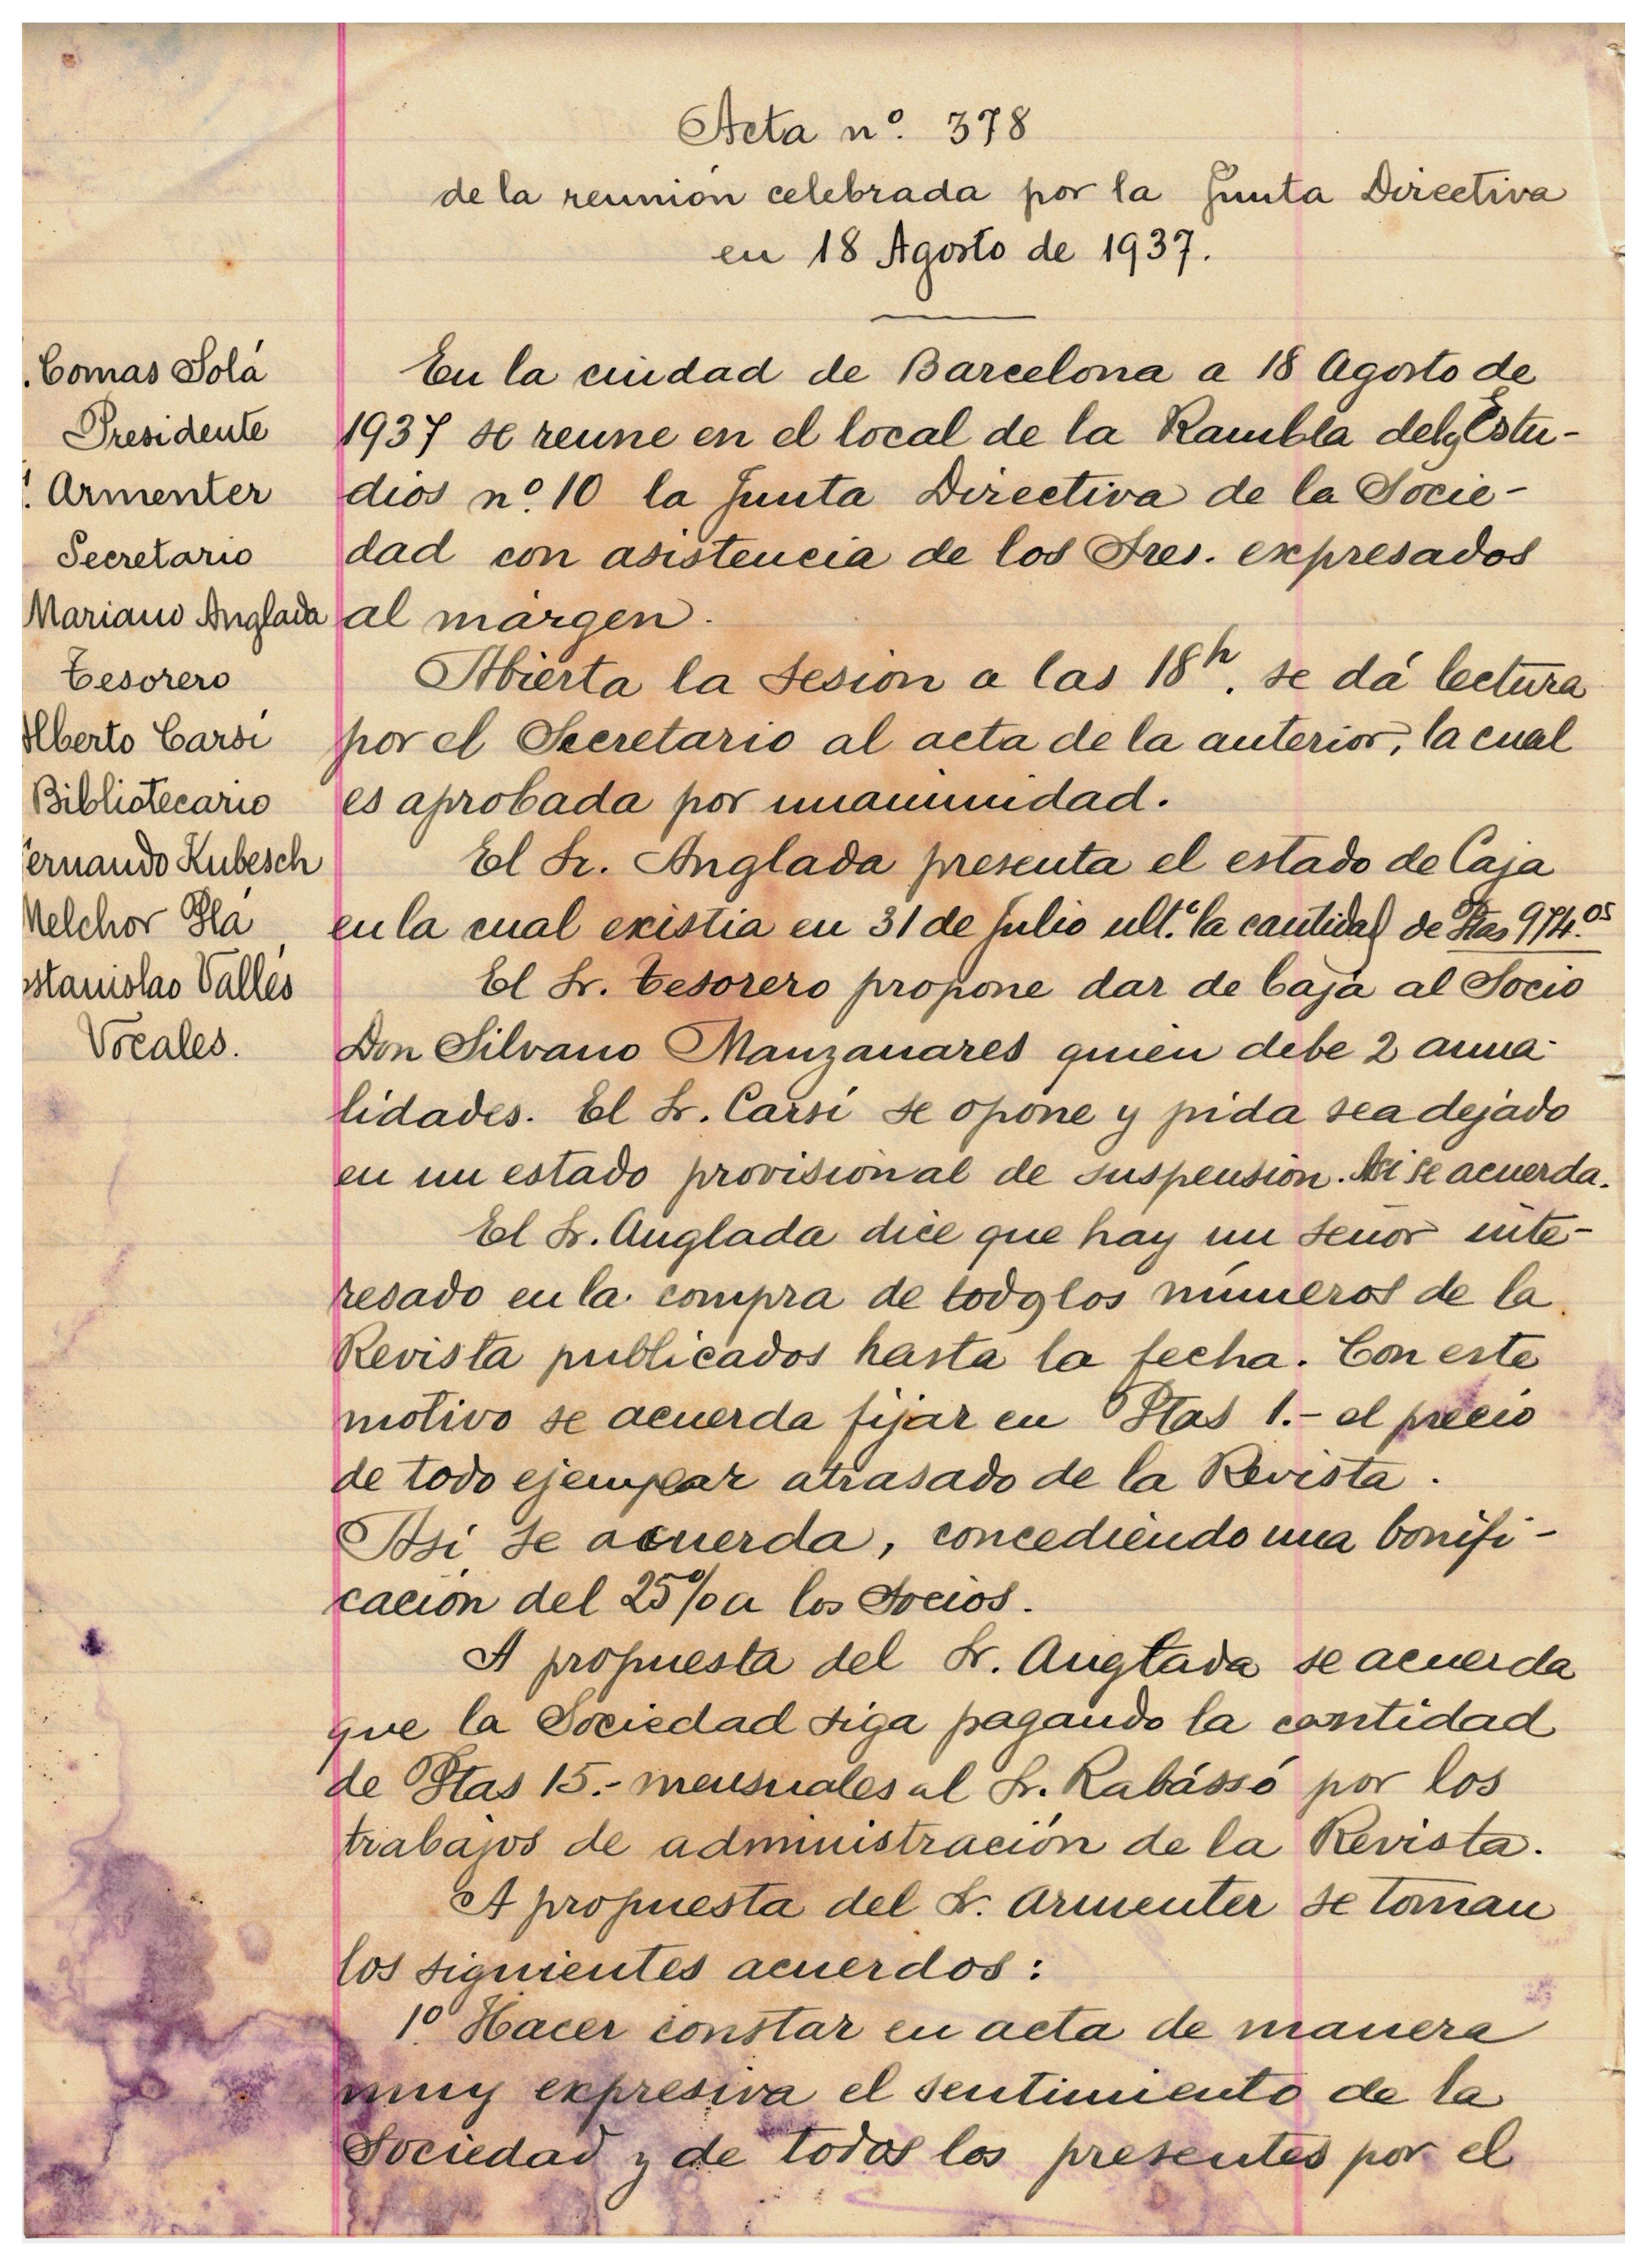 Acta nº. 378
de la reunión celebrada por la Junta Directiva
en 18 Agosto de 1937.
. Comas Solá
Presidente
. Armenter
Secretario
Mariano Anglada
Tesorero
Alberto Carsí
Bibliotecario
ernando Kubesch
Melchor Plá
stanislao Vallés
Vocales.
En la ciudad de Barcelona a 18 Agosto de
1937 se reune en el local de la Rambla de Estu-
dios nº. 10 la Junta Directiva de la Socie-
dad con asistencia de los Sres. expresados
al márgen.
Abierta la sesión a las 18h. se dá lectura
por el Secretario al acta de la anterior, la cual
es aprobada por unanimidad.
El Sr. Anglada presenta el estado de Caja
en la cual existia en 31 de Julio ult.º la cantidad de Ptas 974.05
El Sr. Tesorero propone dar de baja al Socio
Don Silvano Manzanares quien debe 2 anua-
lidades. El Sr. Carsí se opone y pida sea dejado
en un estado provisional de suspensión. Asi se acuerda.
El Sr. Anglada dice que hay un señor inte-
resado en la compra de todos los números de la
Revista publicados hasta la fecha. Con este
motivo se acuerda fijar en Ptas 1.- el precio
de todo ejemplar atrasado de la Revista.
Asi se acuerda, concediendo una bonifi-
cación del 25% a los Socios.
A propuesta del Sr. Anglada se acuerda
que la Sociedad siga pagando la cantidad
de Ptas 15.- mensuales al Sr. Rabássó por los
trabajos de administración de la Revista.
A propuesta del Sr. Armenter se toman
los siguientes acuerdos:
1º. Hacer constar en acta de manera
muy expresiva el sentimiento de la
Sociedad y de todos los presentes por el